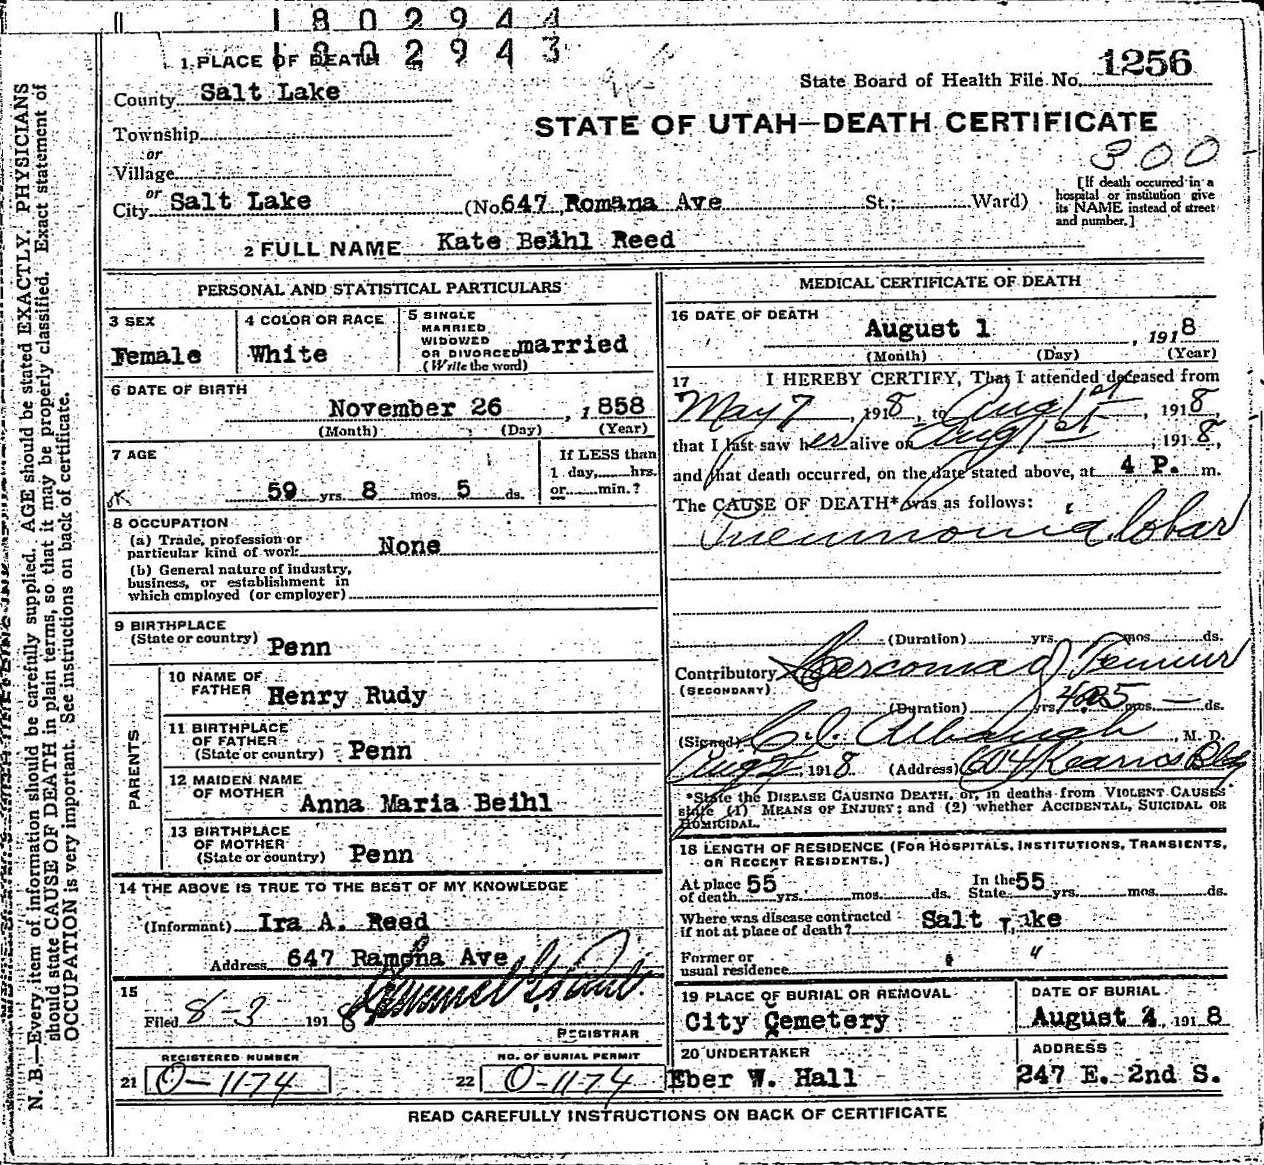 1802944
1802943
1 PLACE OF DEATH
State Board of Health File No. 1256
County Salt Lake
STATE OF UTAH—DEATH CERTIFICATE
Township
300
or
Village
or
City Salt Lake (No 647 Romana Ave St.; Ward)
[If death occurred in a
hospital or institution give
its NAME instead of street
and number.]
2 FULL NAME Kate Beihl Reed
PERSONAL AND STATISTICAL PARTICULARS
3 SEX
Female
4 COLOR OR RACE
White
5 SINGLE
MARRIED
WIDOWED
OR DIVORCED married
(Write the word)
6 DATE OF BIRTH
November 26, 1858
(Month) (Day) (Year)
7 AGE
59 yrs 8 mos 5 ds.
If LESS than
1 day, hrs.
or min.?
8 OCCUPATION
(a) Trade, profession or
particular kind of work None
(b) General nature of industry,
business, or establishment in
which employed (or employer)
9 BIRTHPLACE
(State or country) Penn
PARENTS
10 NAME OF
FATHER Henry Rudy
11 BIRTHPLACE
OF FATHER
(State or country) Penn
12 MAIDEN NAME
OF MOTHER Anna Maria Beihl
13 BIRTHPLACE
OF MOTHER
(State or country) Penn
14 THE ABOVE IS TRUE TO THE BEST OF MY KNOWLEDGE
(Informant) Ira A. Reed
Address 647 Ramona Ave
15
Filed 8-3 1918
REGISTRAR
REGISTERED NUMBER
21 O-1174
NO. OF BURIAL PERMIT
22 O-1174
MEDICAL CERTIFICATE OF DEATH
16 DATE OF DEATH
August 1, 1918
(Month) (Day) (Year)
17 I HEREBY CERTIFY, That I attended deceased from
May 7, 1918, to Aug 1st, 1918,
that I last saw her alive on Aug 1st, 1918,
and that death occurred, on the date stated above, at 4 P. m.
The CAUSE OF DEATH* was as follows:
Pneumonia lobar
(Duration) yrs. mos. ds.
Contributory
(SECONDARY)
(Duration) yrs. mos. ds.
(Signed) M. D.
Aug 2 1918 (Address) 604 Kearns Bldg
*State the DISEASE CAUSING DEATH, or, in deaths from VIOLENT CAUSES
state (1) MEANS OF INJURY; and (2) whether ACCIDENTAL, SUICIDAL OR
HOMICIDAL.
18 LENGTH OF RESIDENCE (FOR HOSPITALS, INSTITUTIONS, TRANSIENTS,
OR RECENT RESIDENTS.)
At place
of death 55 yrs. mos. ds.
In the
State 55 yrs. mos. ds.
Where was disease contracted
if not at place of death? Salt Lake
Former or
usual residence "
19 PLACE OF BURIAL OR REMOVAL
City Cemetery
DATE OF BURIAL
August 4, 1918
20 UNDERTAKER
Eber W. Hall
ADDRESS
247 E. 2nd S.
READ CAREFULLY INSTRUCTIONS ON BACK OF CERTIFICATE
N. B.—Every item of information should be carefully supplied. AGE should be stated EXACTLY. PHYSICIANS
should state CAUSE OF DEATH in plain terms, so that it may be properly classified. Exact statement of
OCCUPATION is very important. See instructions on back of certificate.